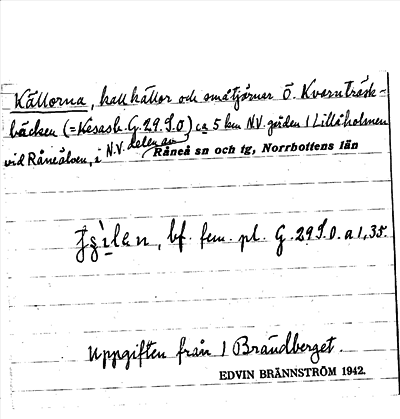 Källorna, kallkällor och småtjärnar Ö. Kvarnträsk-
bäcken (=Kesasb. G.29.S.0) ca 5 km N.V. gården 1 Lillåholmen
vid Råneälven, i N.V. delen av Råneå sn och tg, Norrbottens län
bf. fem. pl. G.29S.0.a1,35.
Uppgiften från 1 Brändberget.
EDVIN BRÄNNSTRÖM 1942.